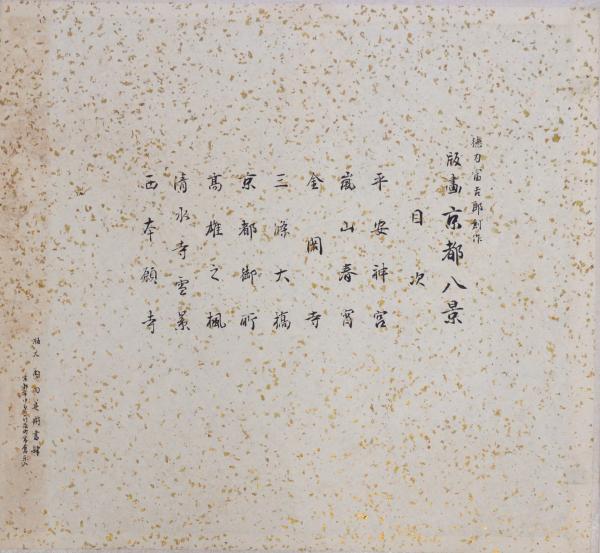 徳力富吉郎創作
版画京都八景
目次
平安神宮
嵐山春宵
金閣寺
三條大橋
京都御所
高雄之楓
清水寺雪景
西本願寺
版元 内田美術書肆